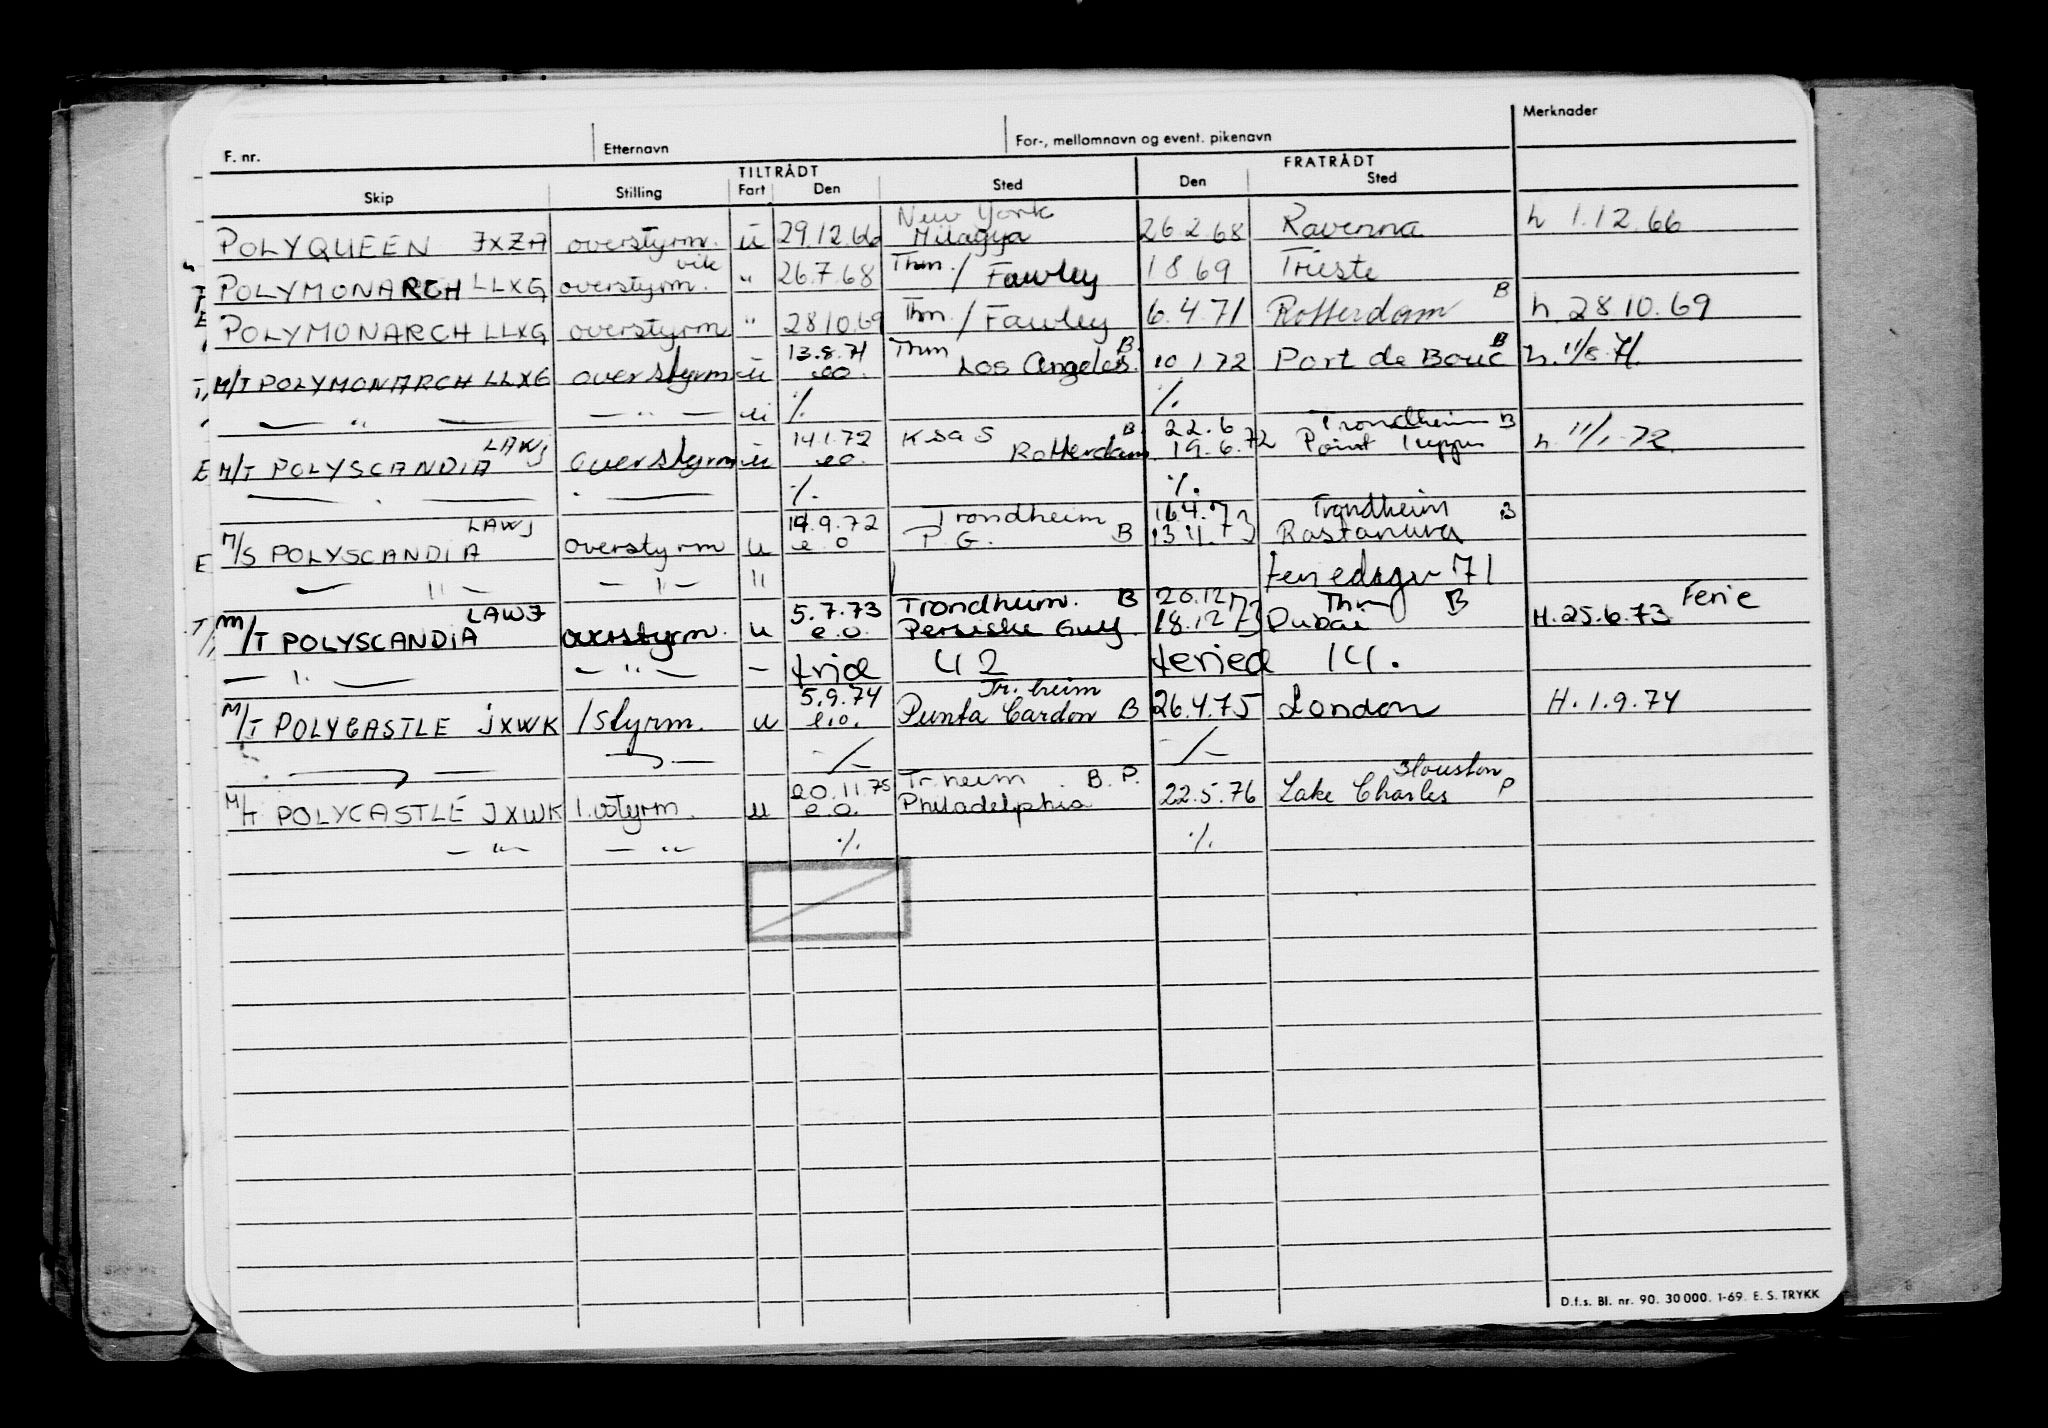 F. nr. Etternavn For-, mellomnavn og event. pikenavn Merknader
TILTRÅDT FRATRÅDT
Skip Stilling Fart Den Sted Den Sted
New York
POLYQUEEN JXZA overstyrm. u 29.12.66 26.2.68 Ravenna h 1.12.66
vik
POLYMONARCH LLXG overstyrm. " 26.7.68 Thm. / Fawley 1 8 69 Trieste
POLYMONARCH LLXG overstyrm " 28.10.69 Thm. / Fawley 6.4.71 Rotterdam B h. 28.10.69
13.8.71 Thm B. B
M/T POLYMONARCH LLXG overstyrm u eo. Los Angeles. 10 1 72 Port de Bouc h. 11/8.71.
— " — u ⁒ ⁒
LAWJ 14.1.72 K S a S B. 22.6 Trondheim B
E M/T POLYSCANDIA overstyrm u eo. Rotterdam 19.6.72 Point Tupper h. 11/1-72
— " — ⁒ ⁒
LAWJ 19.9.72 Trondheim 16.4.73 Trondheim B
E M/S POLYSCANDIA overstyrm u e.o P.G. B 13.4.73 Rastanura
— " — — " — " feriedager 71
LAWJ 5.7.73 Trondheim. B 20.12 Thm B Ferie
M/T POLYSCANDIA overstyrm. u e.o. Persiske Gulf. 18.12.73 Dubai H. 25.6.73
— " — — " — – frid 42 feried 14.
5.9.74 Tr.heim
M/T POLYCASTLE JXWK 1 styrm. u e.o. Punta Cardon B 26.4.75 London H. 1.9.74
— " — ⁒ ⁒
20.11.75 Tr.heim B. P. Houston
M/T POLYCASTLE JXWK 1. ostyrm. u e.o. Philadelphia 22.5.76 Lake Charles P
— " — — " — ⁒ ⁒
D.f.s. Bl. nr. 90. 30 000. 1-69. E. S. TRYKK